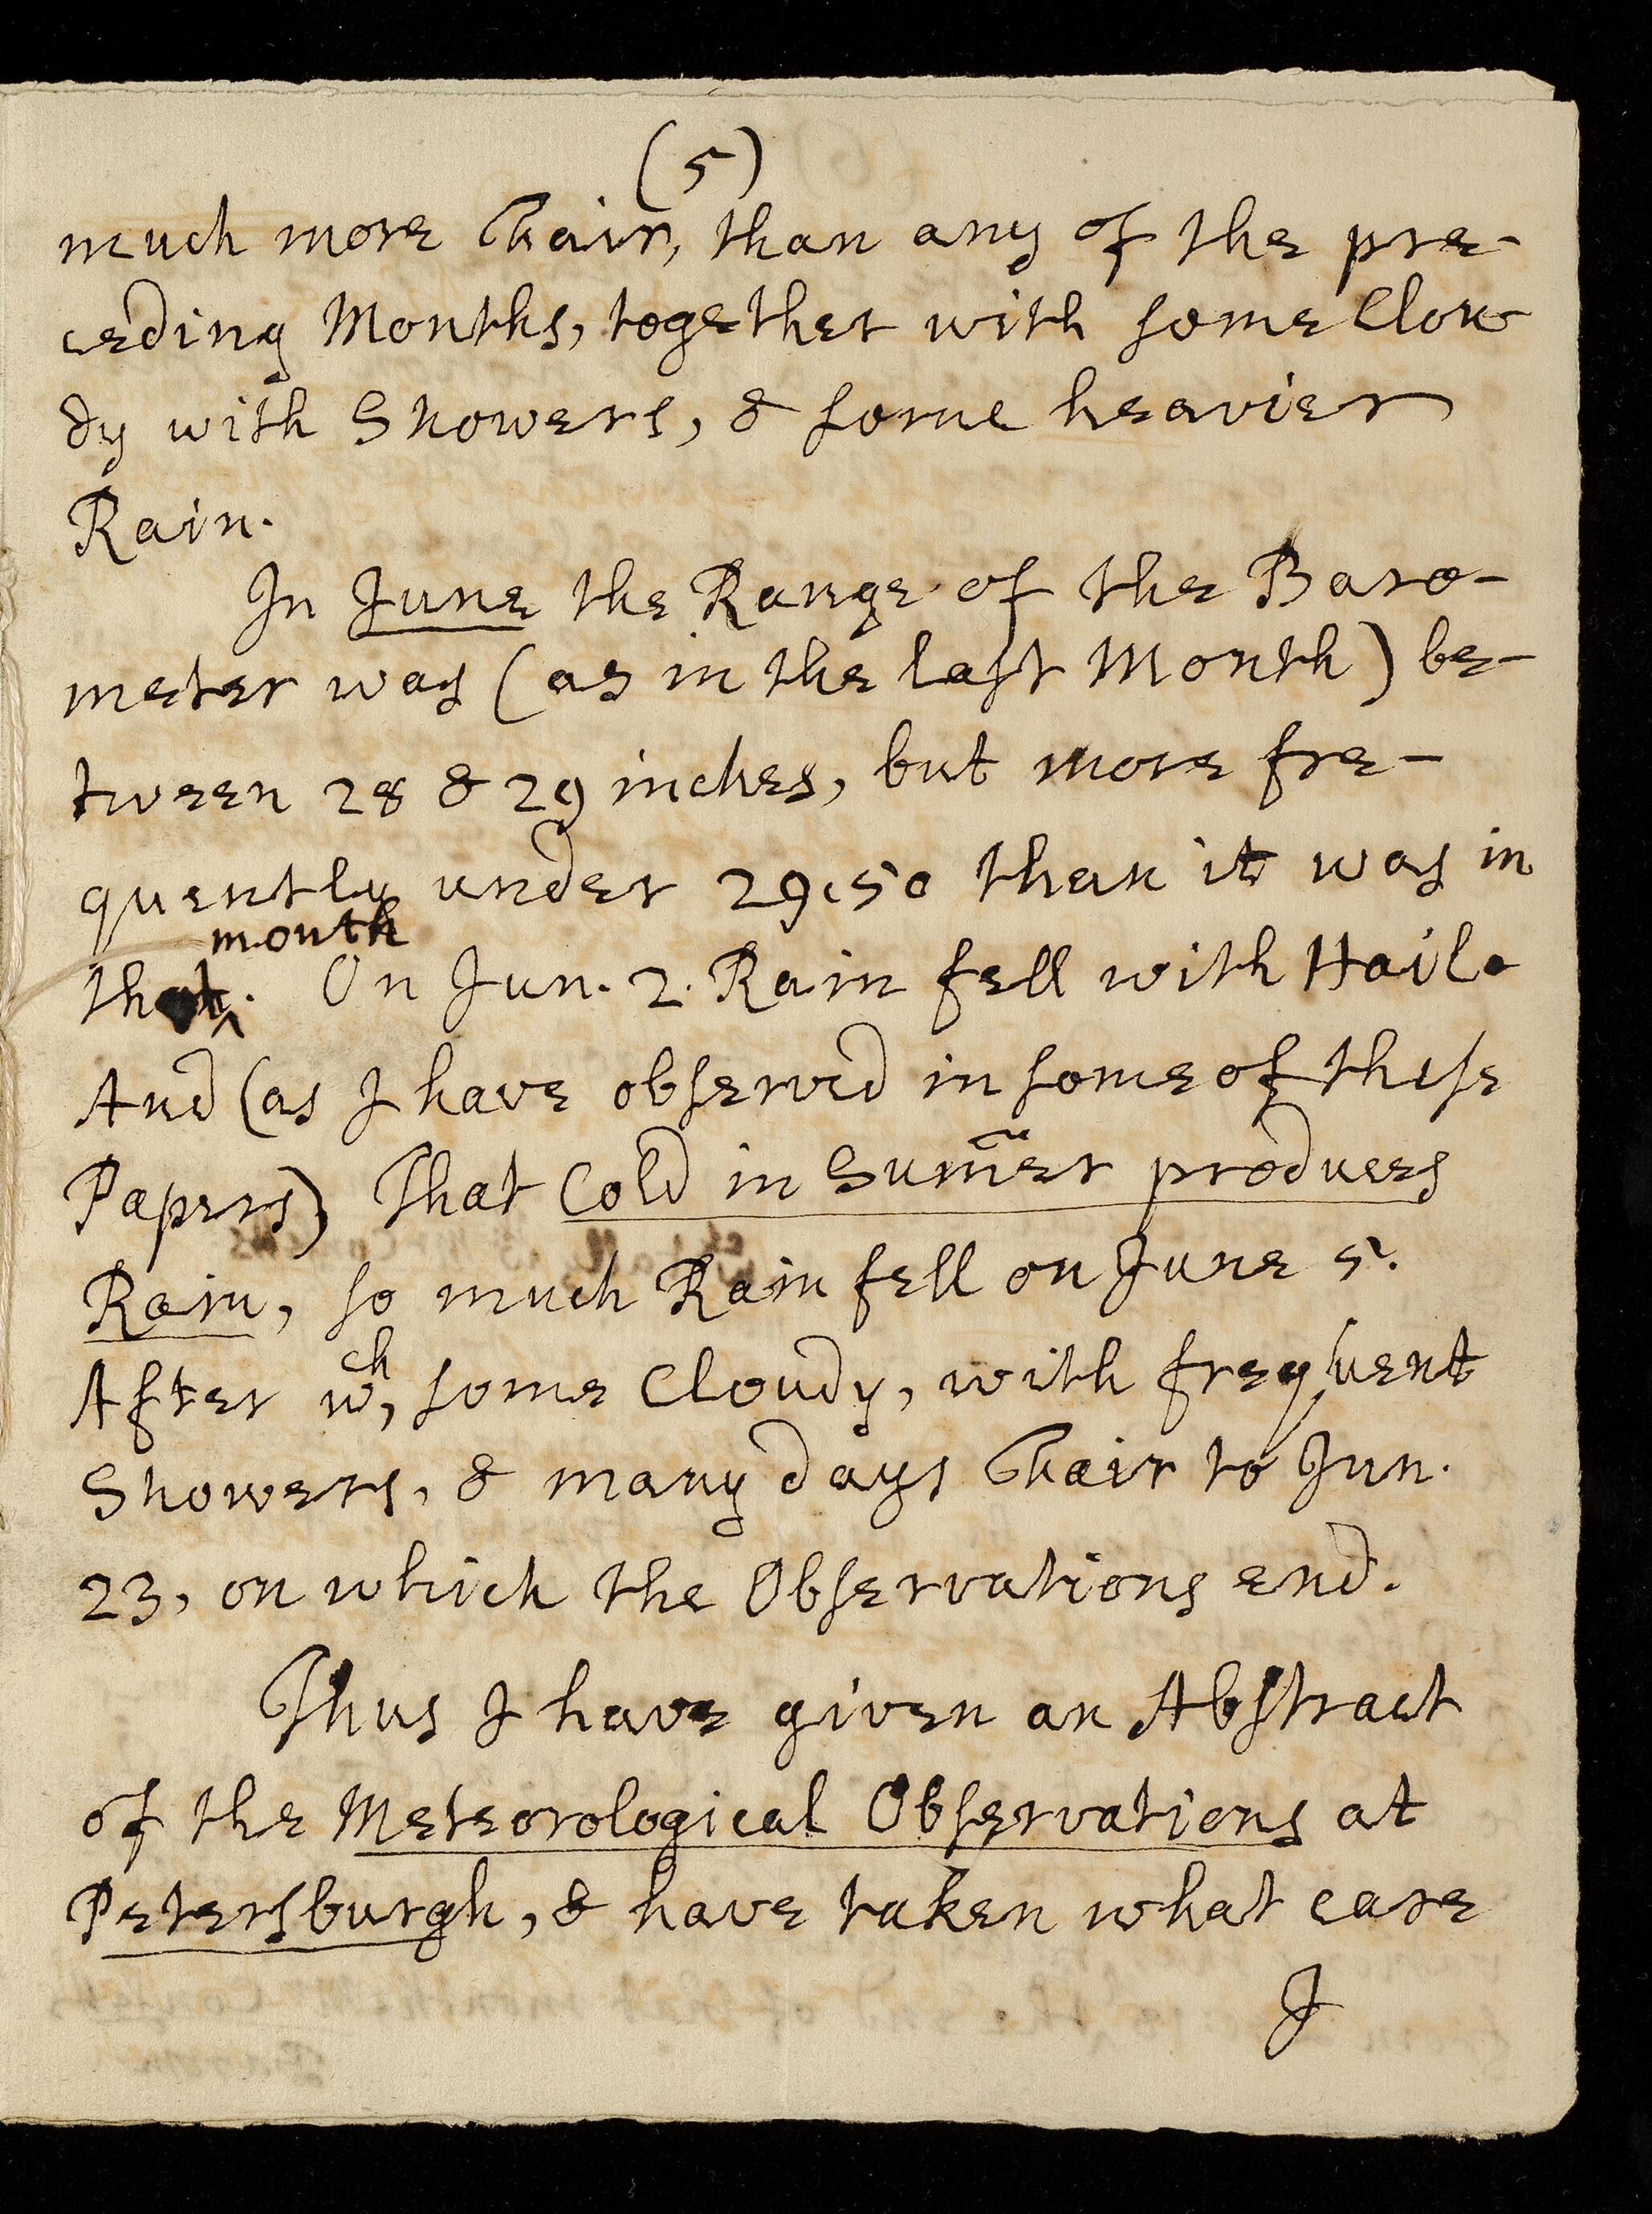 (5)
much more Fair, than any of the pre-
ceding Months, together with some Clou
dy with Showers, & some heavier
Rain.
In June the Range of the Baro-
meter was (as in the last Month) be-
tween 28 & 29 inches, but more fre-
quently under 29.50 than it was in
month
that. On Jun. 2. Rain fell with Hail.
And (as I have observed in some of these
Papers) That Cold in Sum̃er produces
Rain, so much Rain fell on June 5.
After wch, some Cloudy, with frequent
Showers, & many days Fair to Jun.
23, on which the Observations end.
Thus I have given an Abstract
of the Meteorological Observations at
Petersburgh, & have taken what care
I